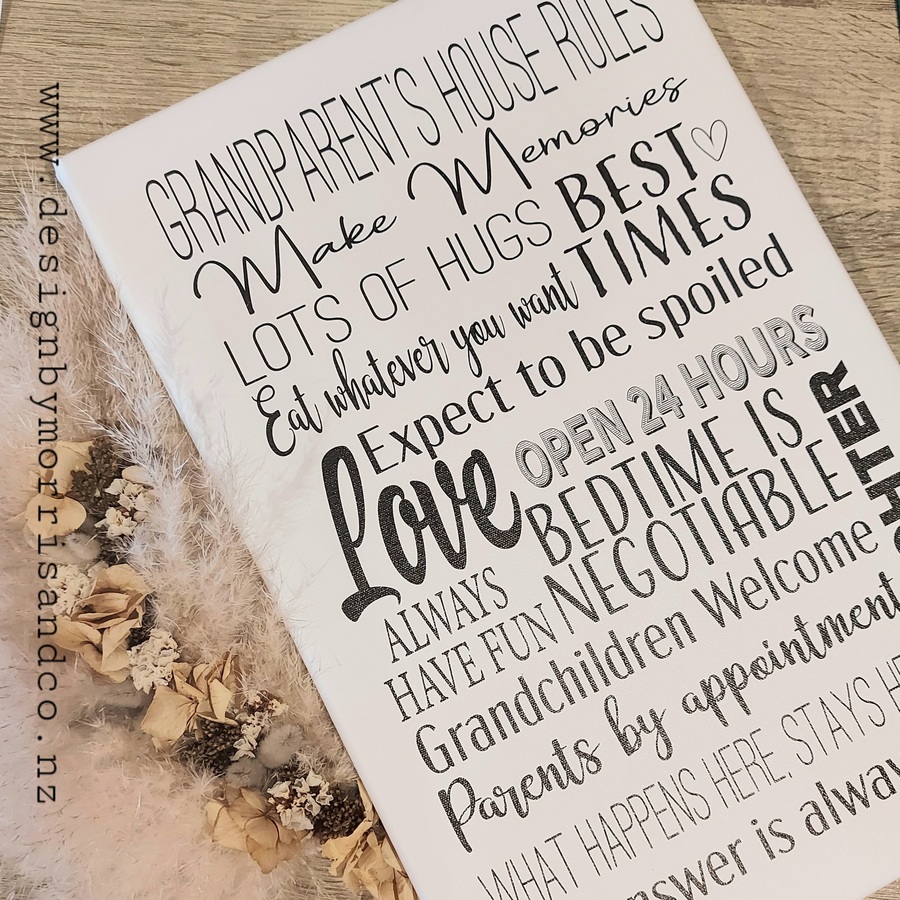 www.designbymorrisandco.nz
GRANDPARENT'S HOUSE RULES
Make Memories
LOTS OF HUGS
BEST
TIMES
Eat whatever you want
Expect to be spoiled
Love
OPEN 24 HOURS
BEDTIME IS
NEGOTIABLE
ALWAYS
HAVE FUN
Grandchildren Welcome
Parents by appointment
WHAT HAPPENS HERE, STAYS
is